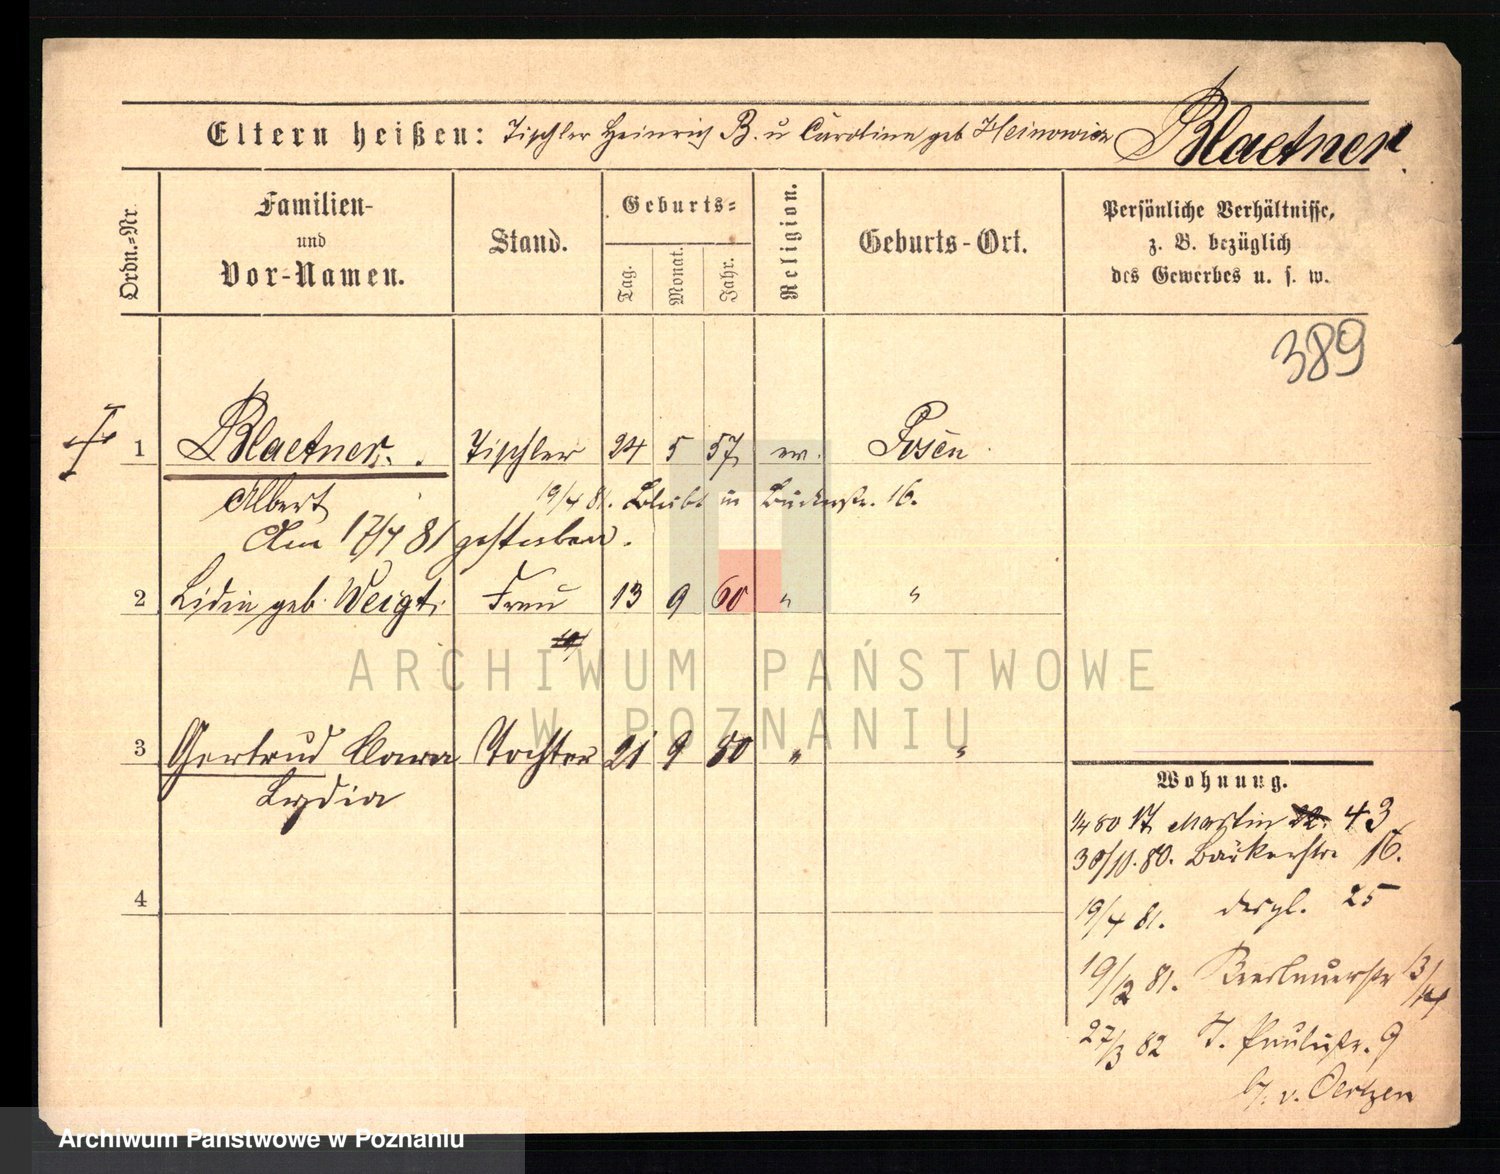 Eltern heißen: Tischler Heinrich B. u Caroline geb Heinowicz Blaetner.
Ordn.=Nr.
Familien-
und
Vor-Namen.
Stand.
Geburts=
Tag.
Monat.
Jahr.
Religion.
Geburts-Ort.
Persönliche Verhältnisse,
z. B. bezüglich
des Gewerbes u. s. w.
389
1 Blaetner. Tischler 24 5 57 ev. Posen
Albert 19/4 81. Bleibt in Bäckerstr. 16.
Am 17/4 81 gestorben.
2 Lidia geb. Weigt. Frau 13 9 60 " "
3 Gertrud Clara Tochter 21 9 80 " "
Lydia
4
Wohnung.
1/4 80 St. Martin 22. 43
30/11. 80. Bäckerstr. 16.
19/4 81. desgl. 25
19/12 81. Breslauerstr 13/14
27/3 82 T. Paulistr. 9
b/. v. Oertzen
ARCHIWUM PAŃSTWOWE
W POZNANIU
Archiwum Państwowe w Poznaniu